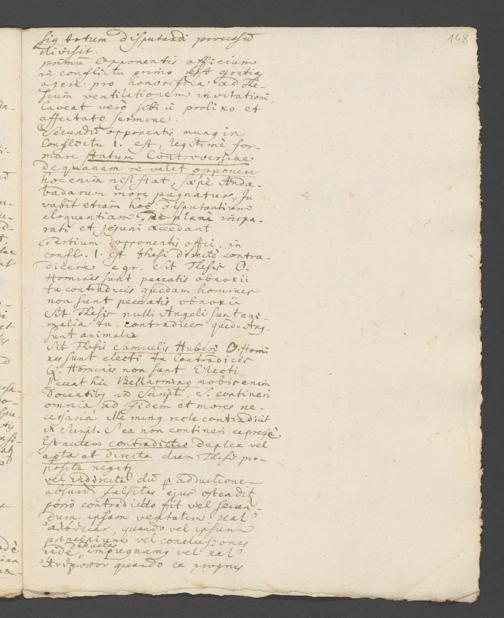 148
sis totum disputandi processum
divisit.
primum Opponentis officium
in conflictu primo est gratias
agere pro honorifica ad The-
sium ventilationem invitatione,
caveat vero sibi a prolixo et
affectato sermone.
Secundum opponentis munus in
Conflictu 1. est, legitime for-
mare statum Controversiae
de quanam re velit opponere
hoc enim nisi fiat, saepe Anda-
batarum more pugnatur, Ju-
vabit etiam hoc disputantium
eloquentiam, ne plane impa-
rati et jejuni accedant
Tertium opponentis offic. in
confl. 1. est thesi directe contra-
dicere egr. Sit Thesis O.
Homines sunt peccatis obnoxii
tu contradicis quidam homines
non sunt peccatis obnoxii
Sit Thesis nulli Angeli sunt ani-
malia tu contradices quid. Ang.
sunt animalia.
Sit Thesis Samuelis Huberi O. Homi
nes sunt electi tu Contradices
Q. Homines non sunt Electi
Peccat hic Bellarminus nobis enim
docentibus in Script. S. contineri
omnia ad fidem et mores ne-
cessaria Ille non recte contradicit
in Script. S. ea non contineri expresse
Est autem contradictio duplex vel
aperta ut directa dum Thesis pro-
posita negatur
vel indirecta dum per adductionem
absurdi falsitas ejus ostendit
porro contradictio fit vel secun-
dum ipsam veritatem
quando vel ipsum
principium vel conclusiones
inde deductas impugnamus vel
quando ex propriis